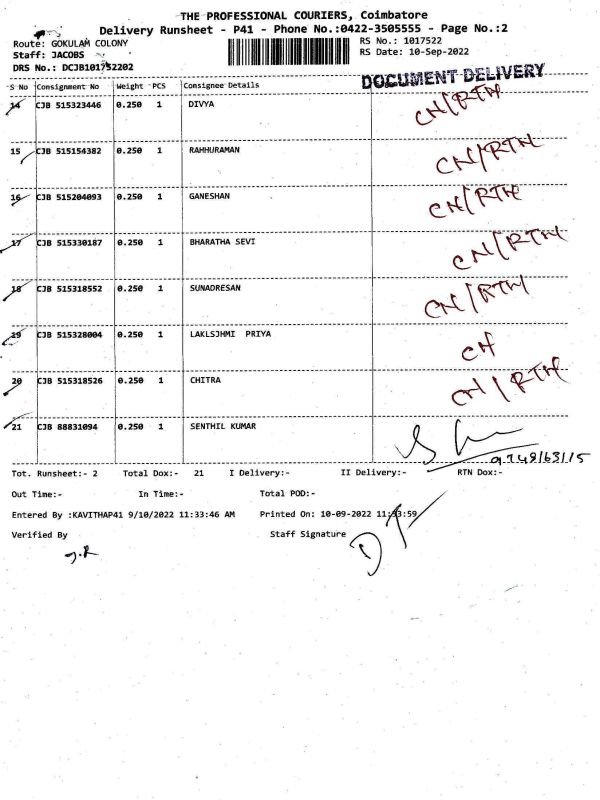 THE PROFESSIONAL COURIERS, Coimbatore
Delivery Runsheet - P41 - Phone No.:0422-3505555 - Page No.:2
Route: GOKULAM COLONY
RS No.: 1017522
Staff: JACOBS
RS Date: 10-Sep-2022
DRS No.: DCJB101752202
DOCUMENT DELIVERY
S No Consignment No Weight PCS Consignee Details
14 CJB 515323446 0.250 1 DIVYA CN/RTN
15 CJB 515154382 0.250 1 RAHHURAMAN CN/RTN
16 CJB 515204093 0.250 1 GANESHAN CN/RTN
17 CJB 515330187 0.250 1 BHARATHA SEVI CN/RTN
18 CJB 515318552 0.250 1 SUNADRESAN CN/RTN
19 CJB 515328004 0.250 1 LAKLSJHMI PRIYA CN
20 CJB 515318526 0.250 1 CHITRA CN/RTN
21 CJB 88831094 0.250 1 SENTHIL KUMAR
Tot. Runsheet:- 2 Total Dox:- 21 I Delivery:- II Delivery:- RTN Dox:-
Out Time:- In Time:- Total POD:-
Entered By :KAVITHAP41 9/10/2022 11:33:46 AM Printed On: 10-09-2022 11:33:59
Verified By Staff Signature